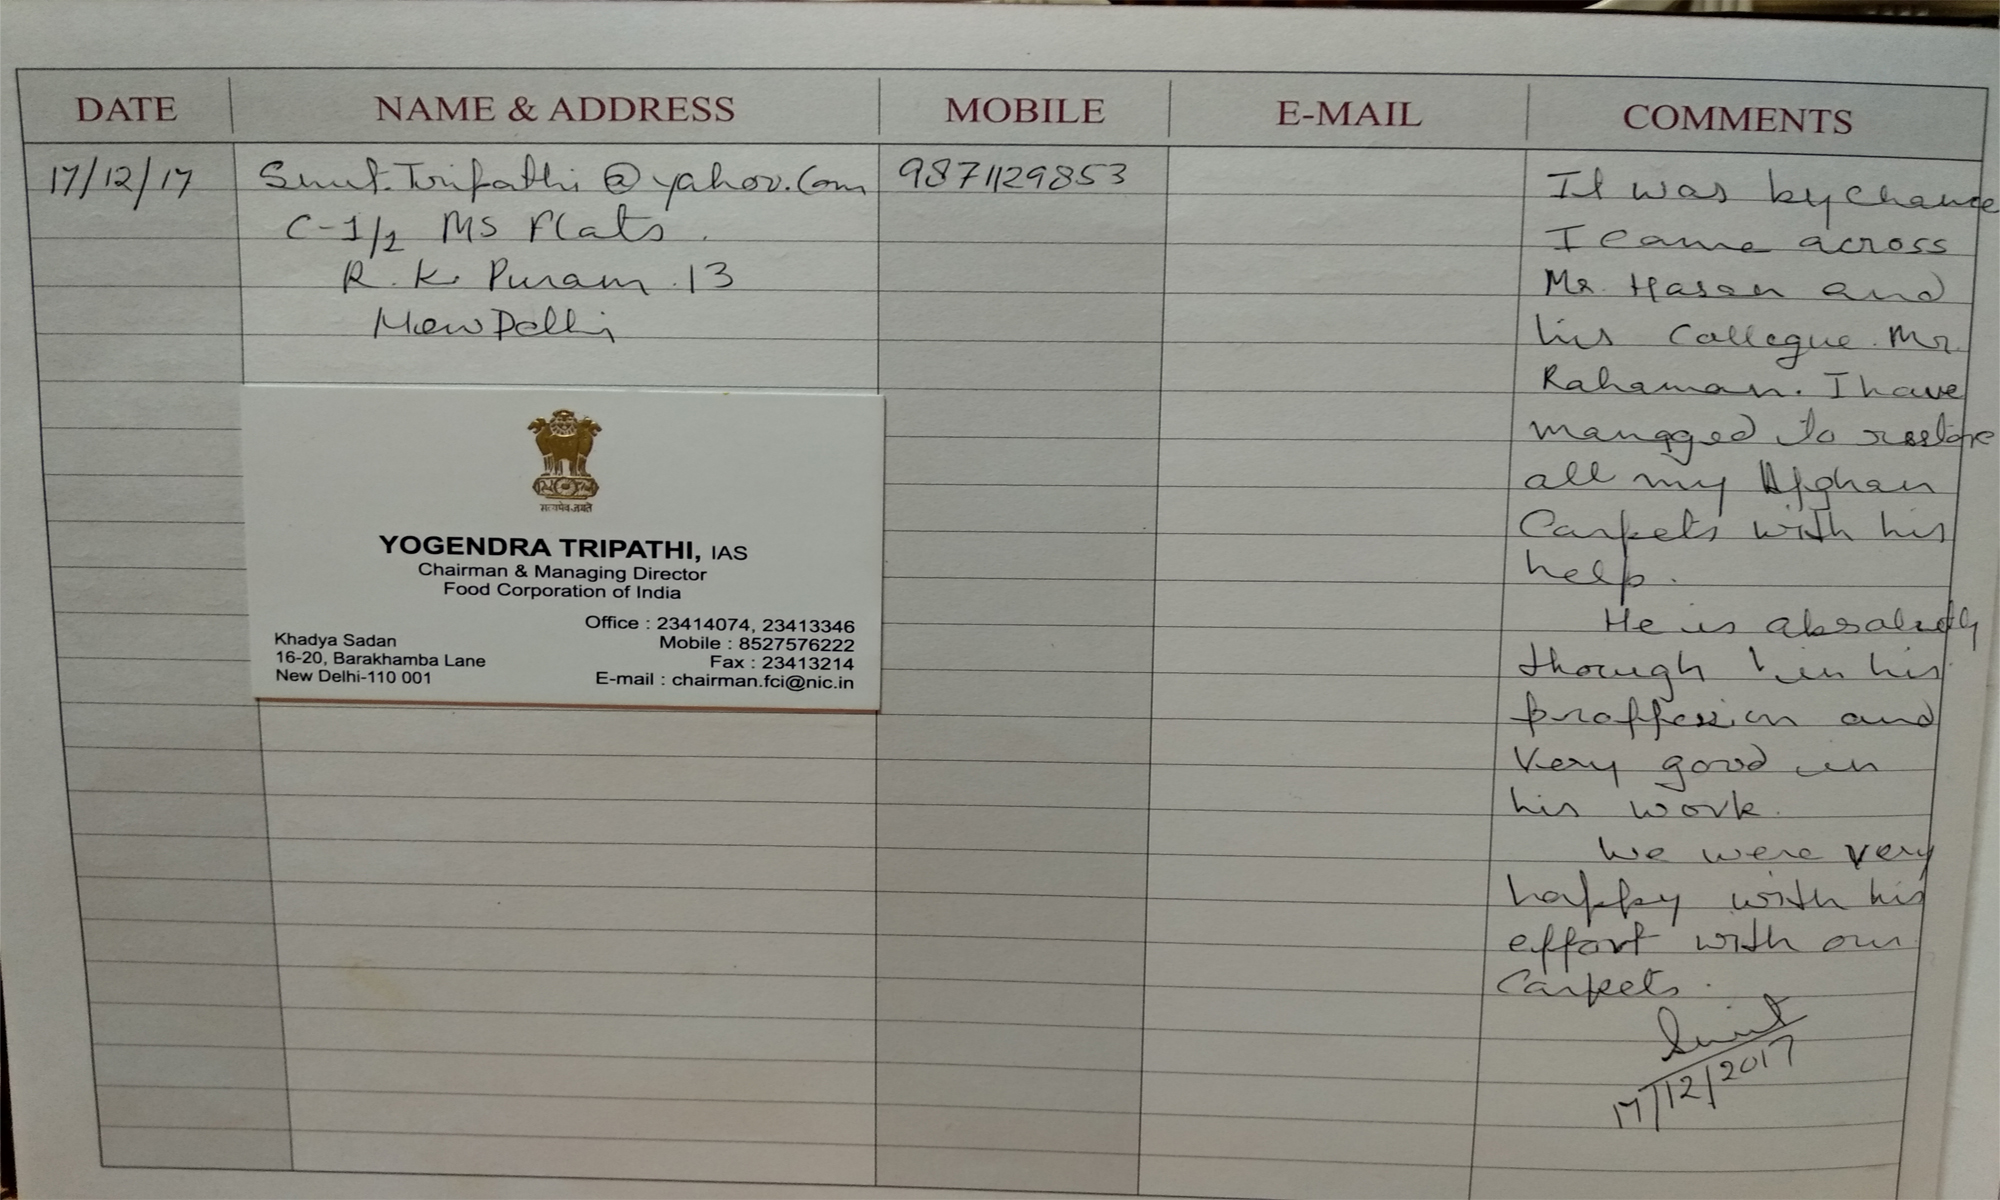 DATE NAME & ADDRESS MOBILE E-MAIL COMMENTS
17/12/17 Smit.Tripathi@yahoo.com 9871129853
C-1/2 MS Flats.
R.K. Puram.13
New Delhi
YOGENDRA TRIPATHI, IAS
Chairman & Managing Director
Food Corporation of India
Office : 23414074, 23413346
Mobile : 8527576222
Fax : 23413214
E-mail : chairman.fci@nic.in
Khadya Sadan
16-20, Barakhamba Lane
New Delhi-110 001
सत्यमेव जयते
It was by chance
I came across
Mr. Hasan and
his Collegue. Mr.
Rahaman. I have
managed to restore
all my Afghan
Carpets with his
help.
He is absolutely
thorough in his
proffession and
Very good in
his work.
We were very
happy with his
effort with our
Carpets.
17/12/2017